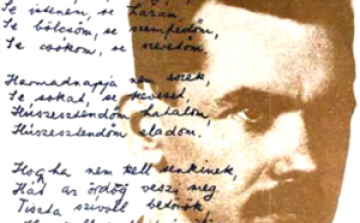 Se istenem, se hazám
Se bölcsőm, se szemfedőm,
Se csókom, se szeretőm.
Harmadnapja nem eszek,
Se sokat, se keveset,
Húszesztendőm hatalom,
Húszesztendőm eladom.
Hogyha nem kell senkinek,
Hát az ördög veszi meg.
Tiszta szívvel betörök